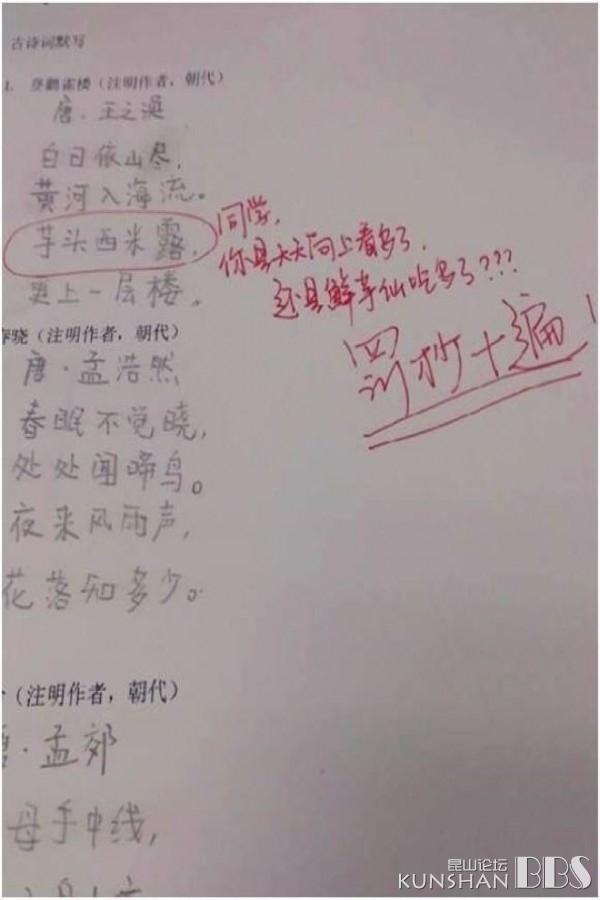 古诗词默写
1. 登鹳雀楼（注明作者，朝代）
唐．王之涣
白日依山尽，
黄河入海流。
芋头西米露，
更上一层楼。
同学，
你是天天向上看多了，
还是鲜芋仙吃多了???
罚抄十遍！
春晓（注明作者，朝代）
唐·孟浩然
春眠不觉晓，
处处闻啼鸟。
夜来风雨声，
花落知多少。
（注明作者，朝代）
唐·孟郊
母手中线，
昆山论坛
KUNSHAN BBS